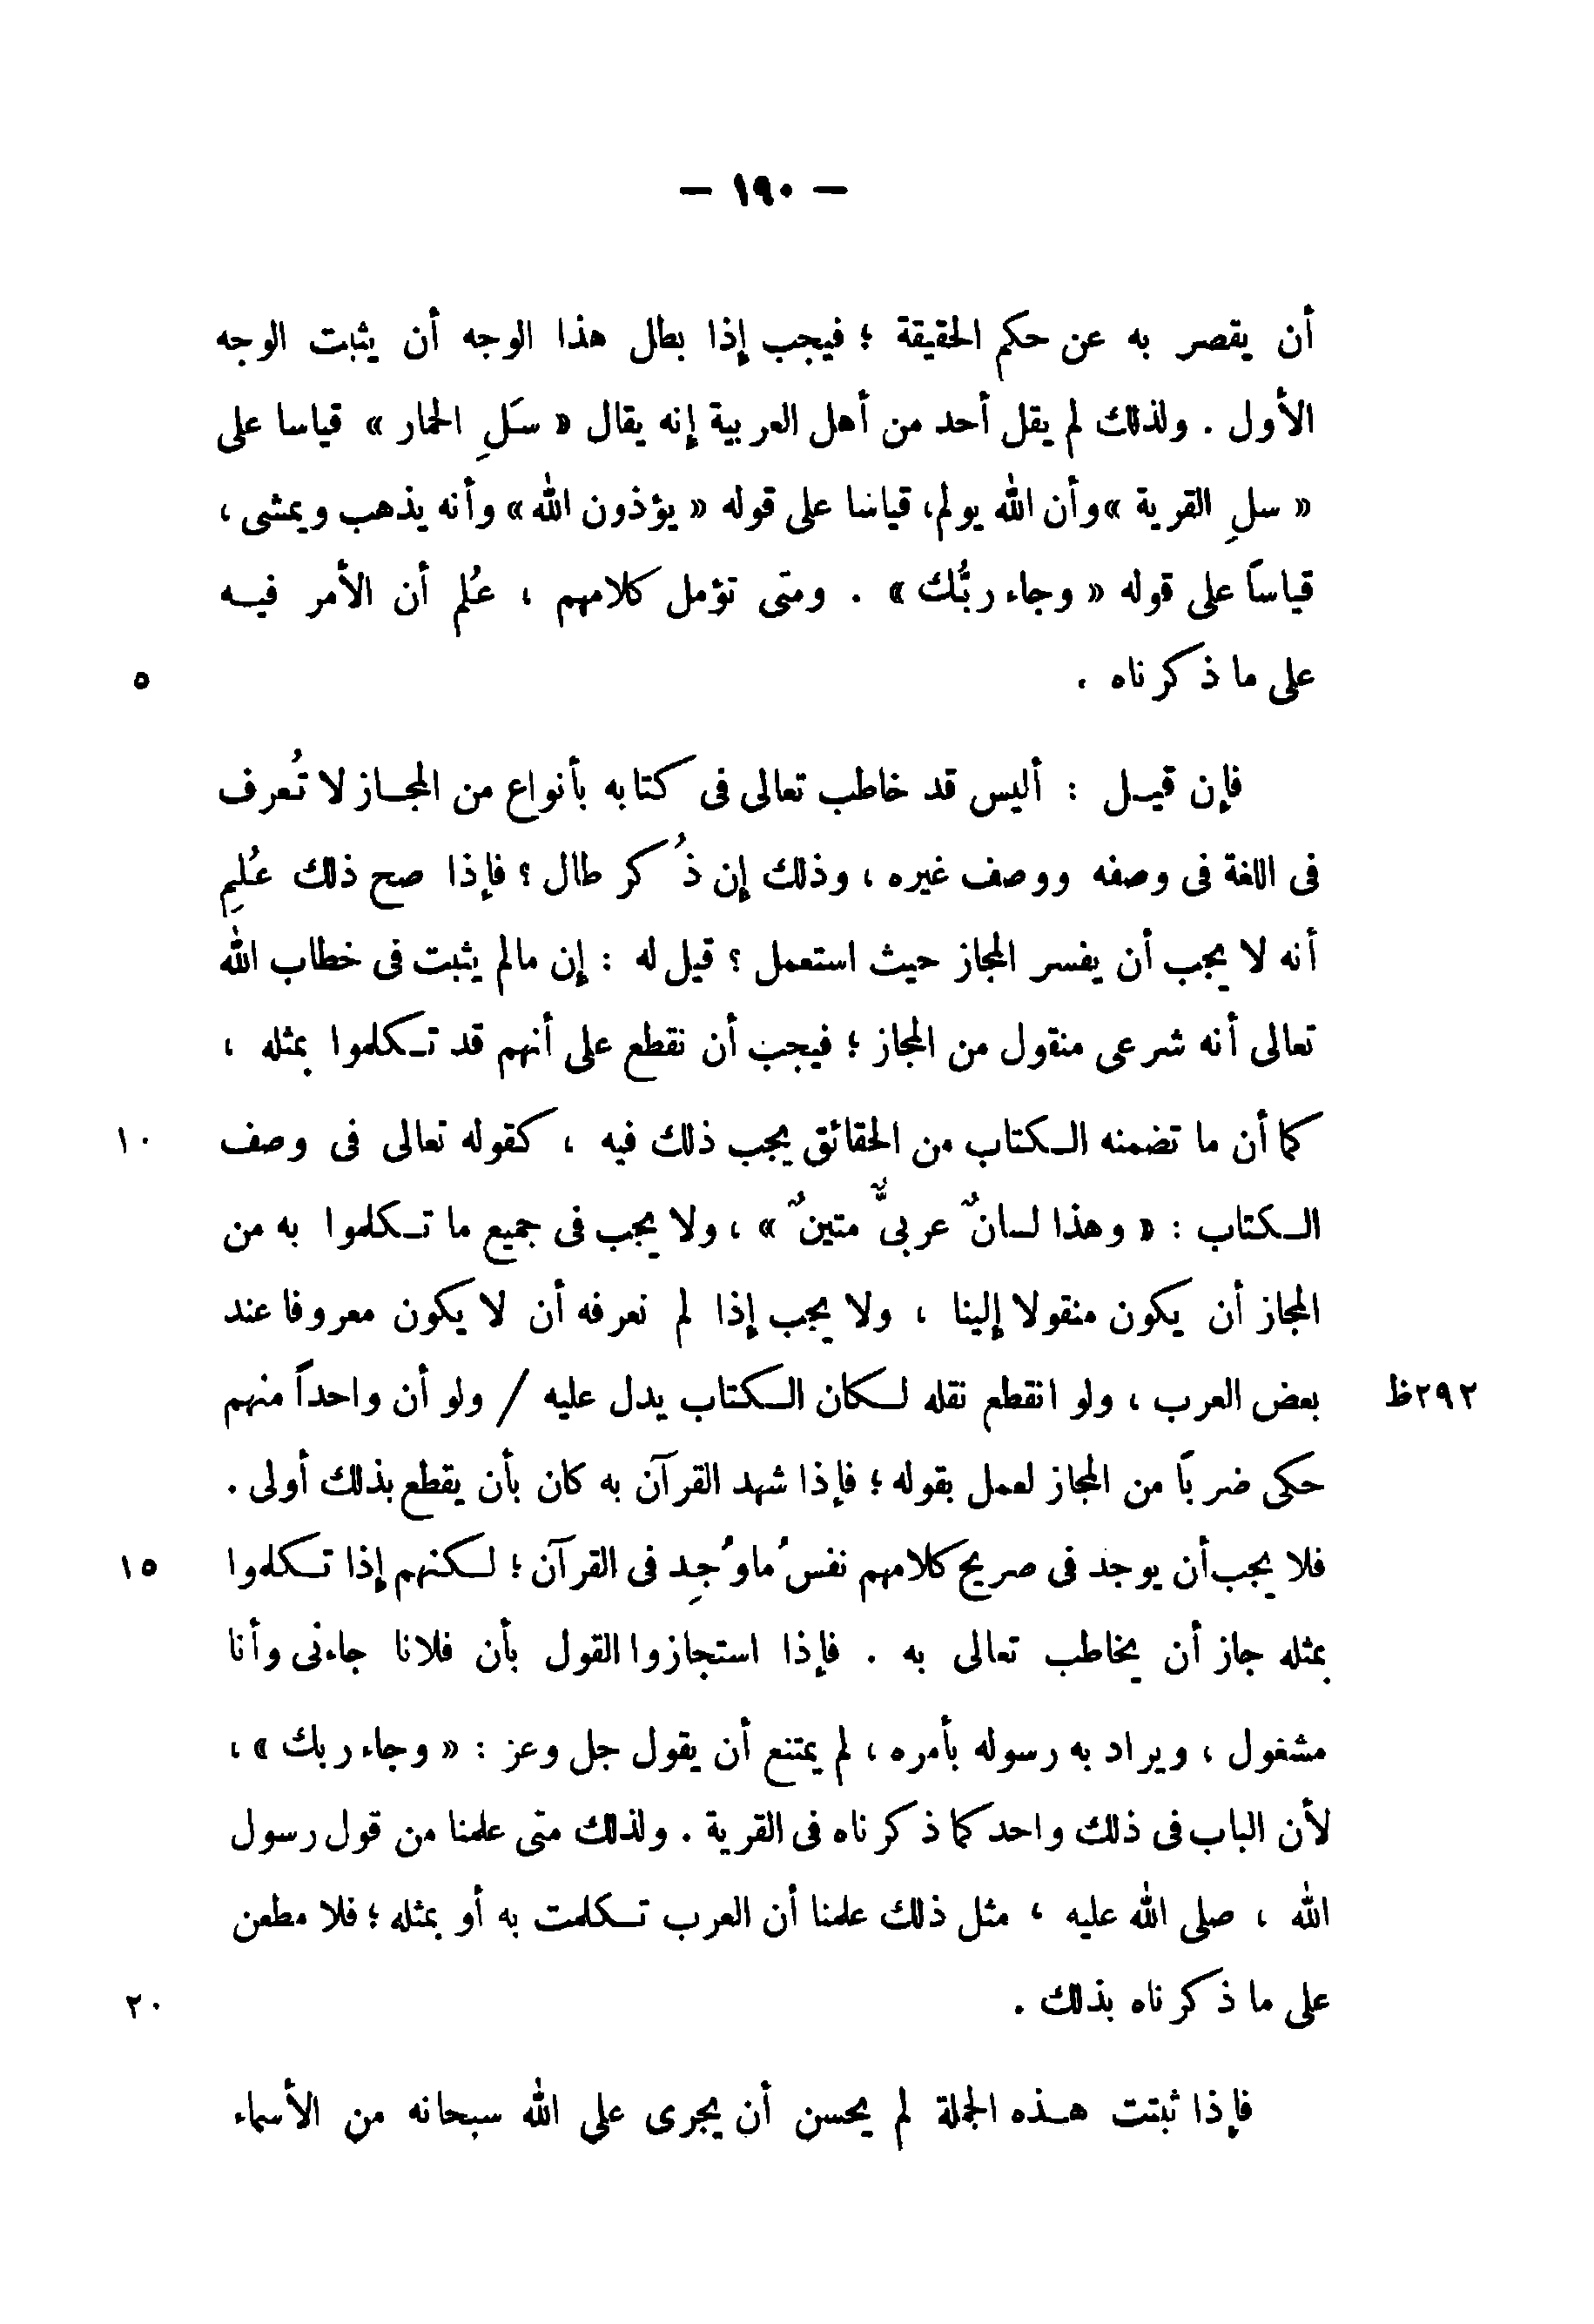 — ١٩٠ —
أن يقصر به عن حكم الحقيقة ؛ فيجب إذا بطل هذا الوجه أن يثبت الوجه
الأول . ولذلك لم يقل أحد من أهل العربية إنه يقال « سَلِ الحمار » قياسا على
« سلِ القرية » وأن الله يولم، قياسا على قوله « يؤذون الله » وأنه يذهب ويمشى ،
قياساً على قوله « وجاء ربُّك » . ومتى تؤمل كلامهم ، عُلم أن الأمر فيه
على ما ذكرناه . ٥
فإن قيل : أليس قد خاطب تعالى فى كتابه بأنواع من المجاز لا تُعرف
فى اللغة فى وصفه ووصف غيره ، وذلك إن ذُكر طال ؟ فإذا صح ذلك عُلِم
أنه لا يجب أن يفسر المجاز حيث استعمل ؟ قيل له : إن مالم يثبت فى خطاب الله
تعالى أنه شرعى منقول من المجاز ؛ فيجب أن نقطع على أنهم قد تكلموا بمثله ،
كما أن ما تضمنه الكتاب من الحقائق يجب ذلك فيه ، كقوله تعالى فى وصف ١٠
الكتاب : « وهذا لسانٌ عربىٌّ متينٌ » ، ولا يجب فى جميع ما تكلموا به من
المجاز أن يكون منقولا إلينا ، ولا يجب إذا لم نعرفه أن لا يكون معروفا عند
٢٩٢ظ بعض العرب ، ولو انقطع نقله لكان الكتاب يدل عليه / ولو أن واحداً منهم
حكى ضرباً من المجاز لعمل بقوله ؛ فإذا شهد القرآن به كان بأن يقطع بذلك أولى .
فلا يجب أن يوجد فى صريح كلامهم نفسُ ماوُجِد فى القرآن ؛ لكنهم إذا تكلموا ١٥
بمثله جاز أن يخاطب تعالى به . فإذا استجازوا القول بأن فلانا جاءنى وأنا
مشغول ، ويراد به رسوله بأمره ، لم يمتنع أن يقول جل وعز : « وجاء ربك » ،
لأن الباب فى ذلك واحد كما ذكرناه فى القرية . ولذلك متى علمنا من قول رسول
الله ، صلى الله عليه ، مثل ذلك علمنا أن العرب تكلمت به أو بمثله ؛ فلا مطعن
على ما ذكرناه بذلك . ٢٠
فإذا ثبتت هذه الجملة لم يحسن أن يجرى على الله سبحانه من الأسماء